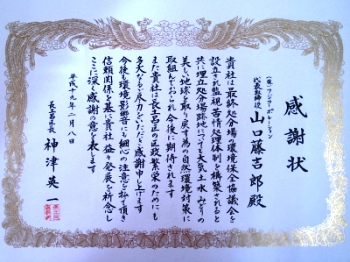 感謝状
代表取締役
山口藤吉郎殿
貴社は最終処分場の環境保全協議会を
設立され監視苦情処理体制を構築されると
共に埋立処分場跡地についても大気土水みどりの
美しい地球を取り戻す為の自然環境対策に
取組んでおられ今後に期待されます
また貴社は長土呂区の区政繁栄のためにも
多大なるご尽力をいただき感謝申し上げます
今後も環境影響にも細心の注意を払って頂き
信頼関係を基に貴社の益々の発展を祈念し
ここに深く感謝の意を表します
平成十九年二月八日
長土呂区長
神津英一